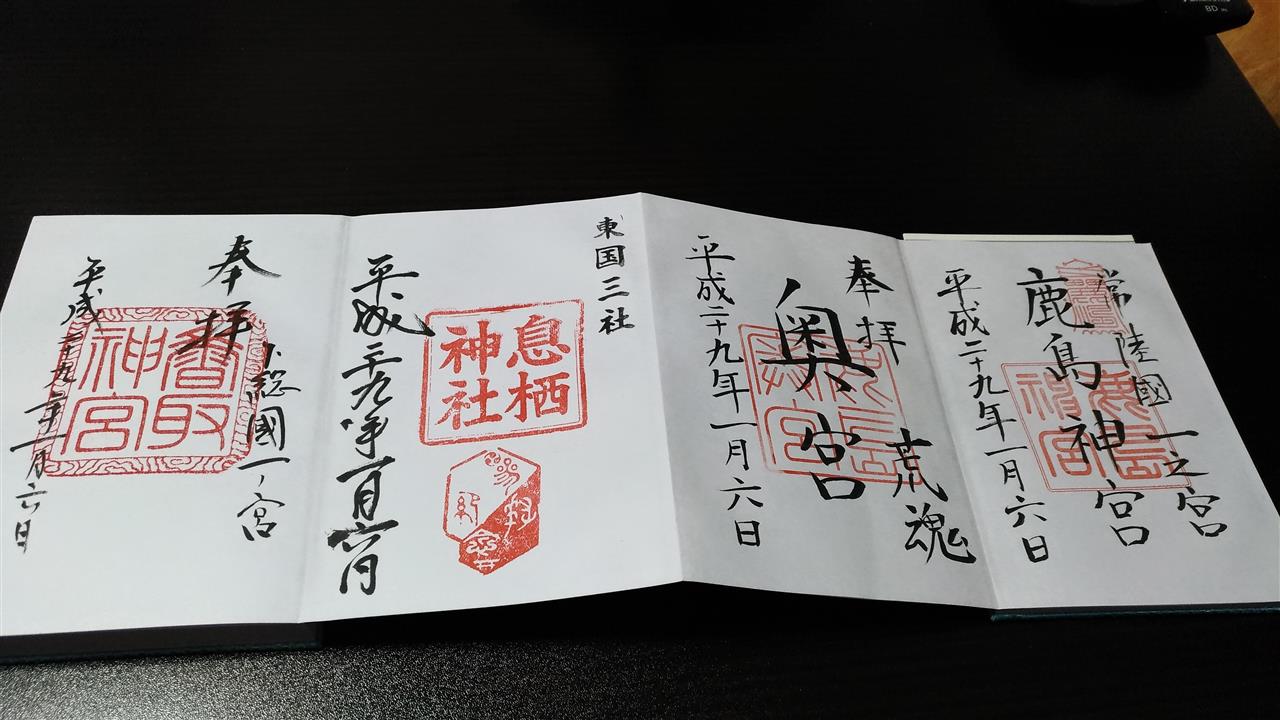 常陸國一之宮
鹿島神宮
鹿島神宮
平成二十九年一月六日
奉拝
荒魂
奥宮
平成二十九年一月六日
東国三社
息栖
神社
平成二十九年一月六日
奉拝
下総國一ノ宮
香取
神宮
平成二十九年一月六日
BD